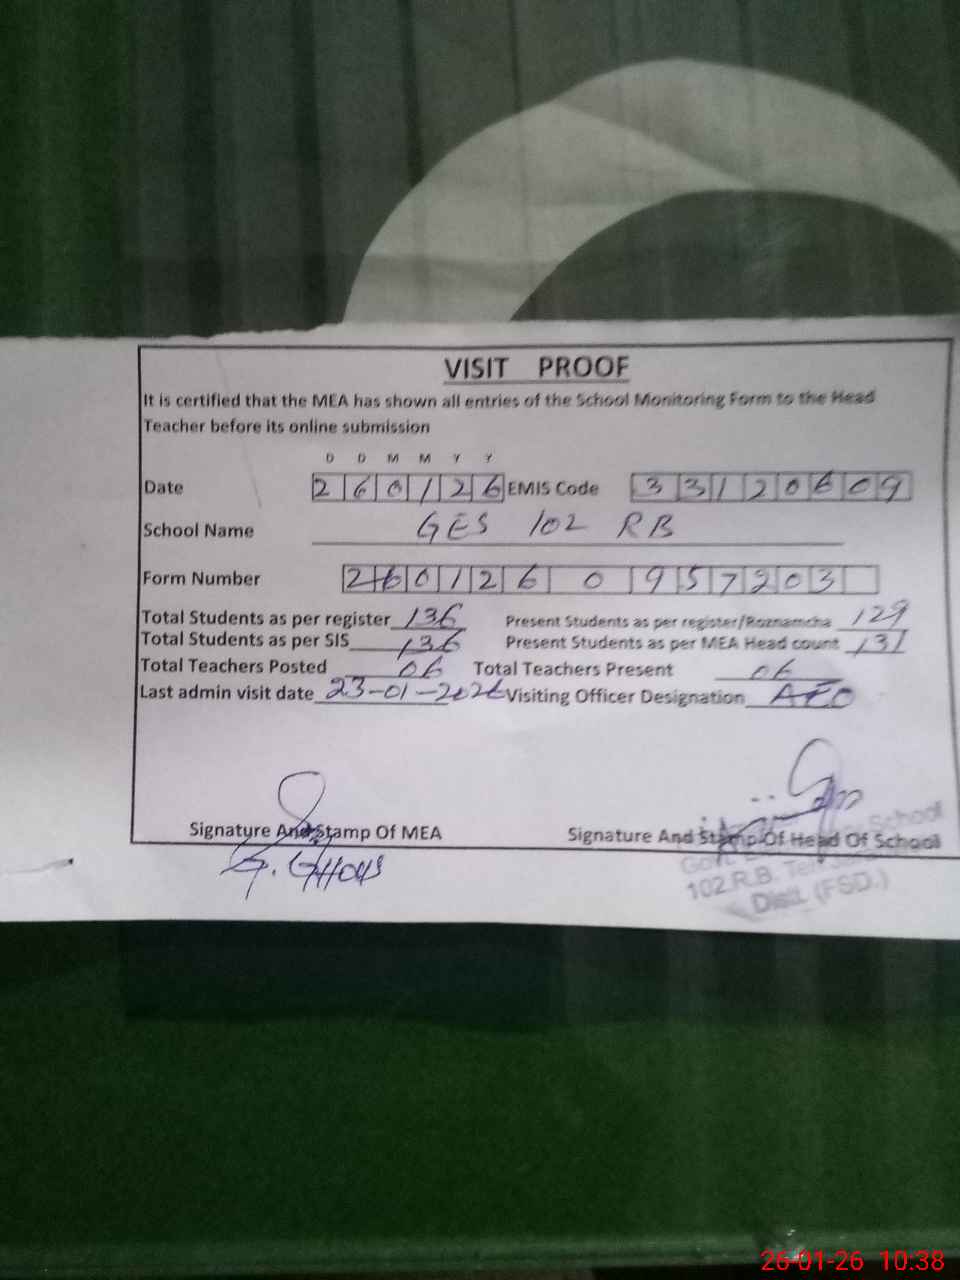 VISIT PROOF
It is certified that the MEA has shown all entries of the School Monitoring Form to the Head
Teacher before its online submission
D D M M Y Y
Date 260126 EMIS Code 33120609
School Name GES 102 RB
Form Number 2601260957203
Total Students as per register 136 Present Students as per register/Roznamcha 129
Total Students as per SIS 136 Present Students as per MEA Head count 131
Total Teachers Posted 06 Total Teachers Present 06
Last admin visit date 23-01-2026 Visiting Officer Designation AEO
Signature And Stamp Of MEA Signature And Stamp Of Head Of School
School
Govt.
102 R.B.
Distt. (FSD.)
26-01-26 10:38